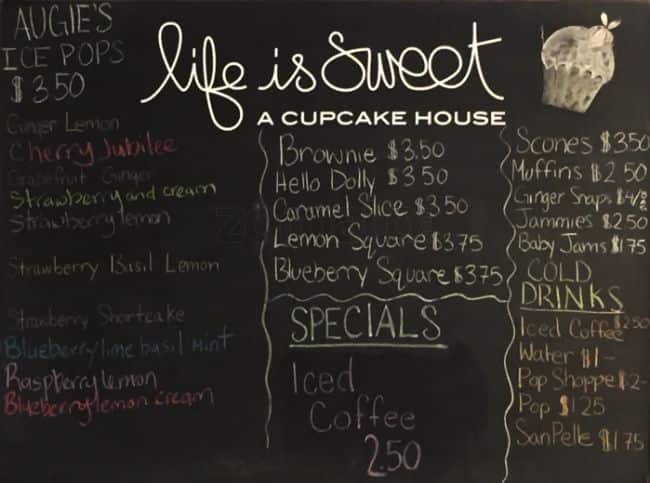 AUGIE'S
ICE POPS
$3.50
Ginger Lemon
Cherry Jubilee
Grapefruit Ginger
Strawberry and cream
Strawberry lemon
Strawberry Basil Lemon
Strawberry Shortcake
Blueberry lime basil Mint
Raspberry lemon
Blueberry lemon cream
life is sweet
A CUPCAKE HOUSE
Brownie $3.50
Hello Dolly $3.50
Caramel Slice $3.50
Lemon Square $3.75
Blueberry Square $3.75
SPECIALS
Iced
Coffee
2.50
Scones $3.50
Muffins $2.50
Ginger Snaps
Jammies $2.50
Baby Jams $1.75
COLD
DRINKS
Iced Coffee $2.50
Water $1-
Pop Shoppe $2-
Pop $1.25
SanPelle $1.75